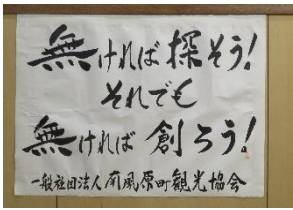 無ければ探そう!
それでも
無ければ創ろう!
一般社団法人南風原町観光協会